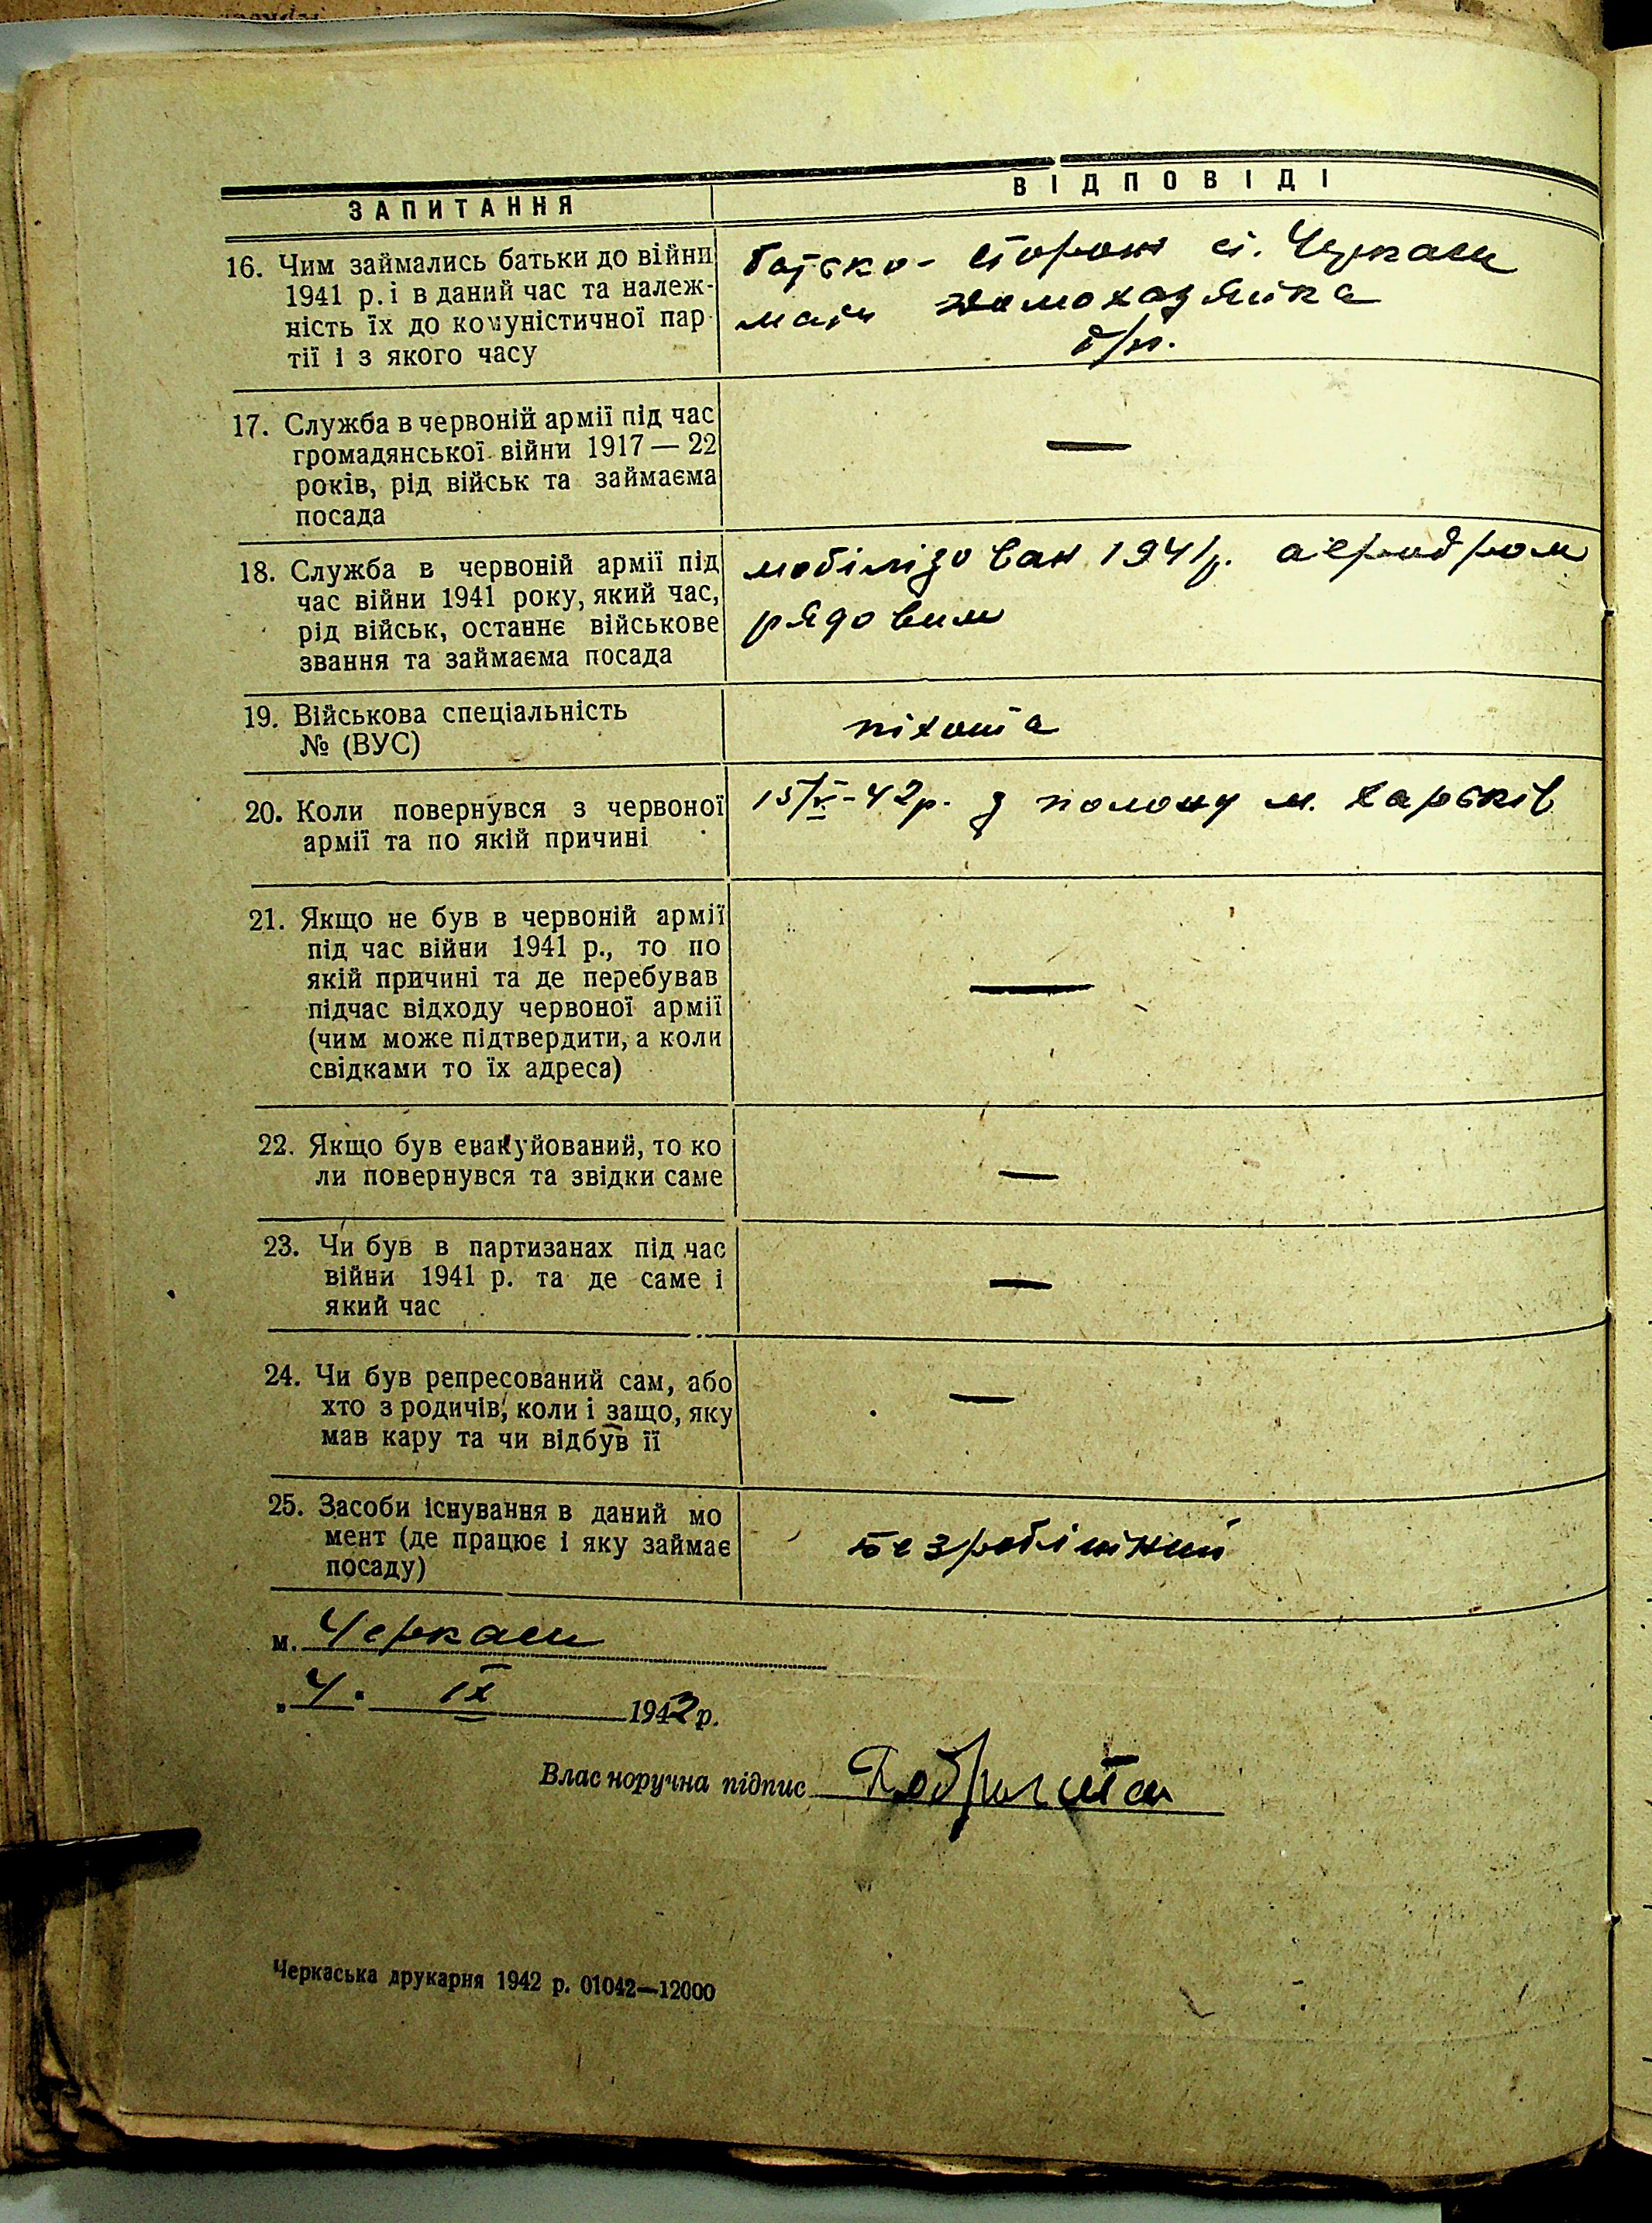 ЗАПИТАННЯ
ВІДПОВІДІ
16. Чим займались батьки до війни
1941 р. і в даний час та належ-
ність їх до комуністичної пар-
тії і з якого часу
батько - сторож ст. Черкаси
мати домохазяйка
б/п.
17. Служба в червоній армії під час
громадянської війни 1917 — 22
років, рід військ та займаєма
посада
—
18. Служба в червоній армії під
час війни 1941 року, який час,
рід військ, останнє військове
звання та займаєма посада
мобілізован 1941р. аеродром
рядовим
19. Військова спеціальність
№ (ВУС)
піхота
20. Коли повернувся з червоної
армії та по якій причині
15/V-42р. з полону м. Харьків
21. Якщо не був в червоній армії
під час війни 1941 р., то по
якій причині та де перебував
підчас відходу червоної армії
(чим може підтвердити, а коли
свідками то їх адреса)
—
22. Якщо був евакуйований, то ко
ли повернувся та звідки саме
—
23. Чи був в партизанах під час
війни 1941 р. та де саме і
який час
—
24. Чи був репресований сам, або
хто з родичів, коли і защо, яку
мав кару та чи відбув її
—
25. Засоби існування в даний мо
мент (де працює і яку займає
посаду)
безробітний
м. Черкаси
„4" IX 1942 р.
Власноручна підпис
Черкаська друкарня 1942 р. 01042—12000